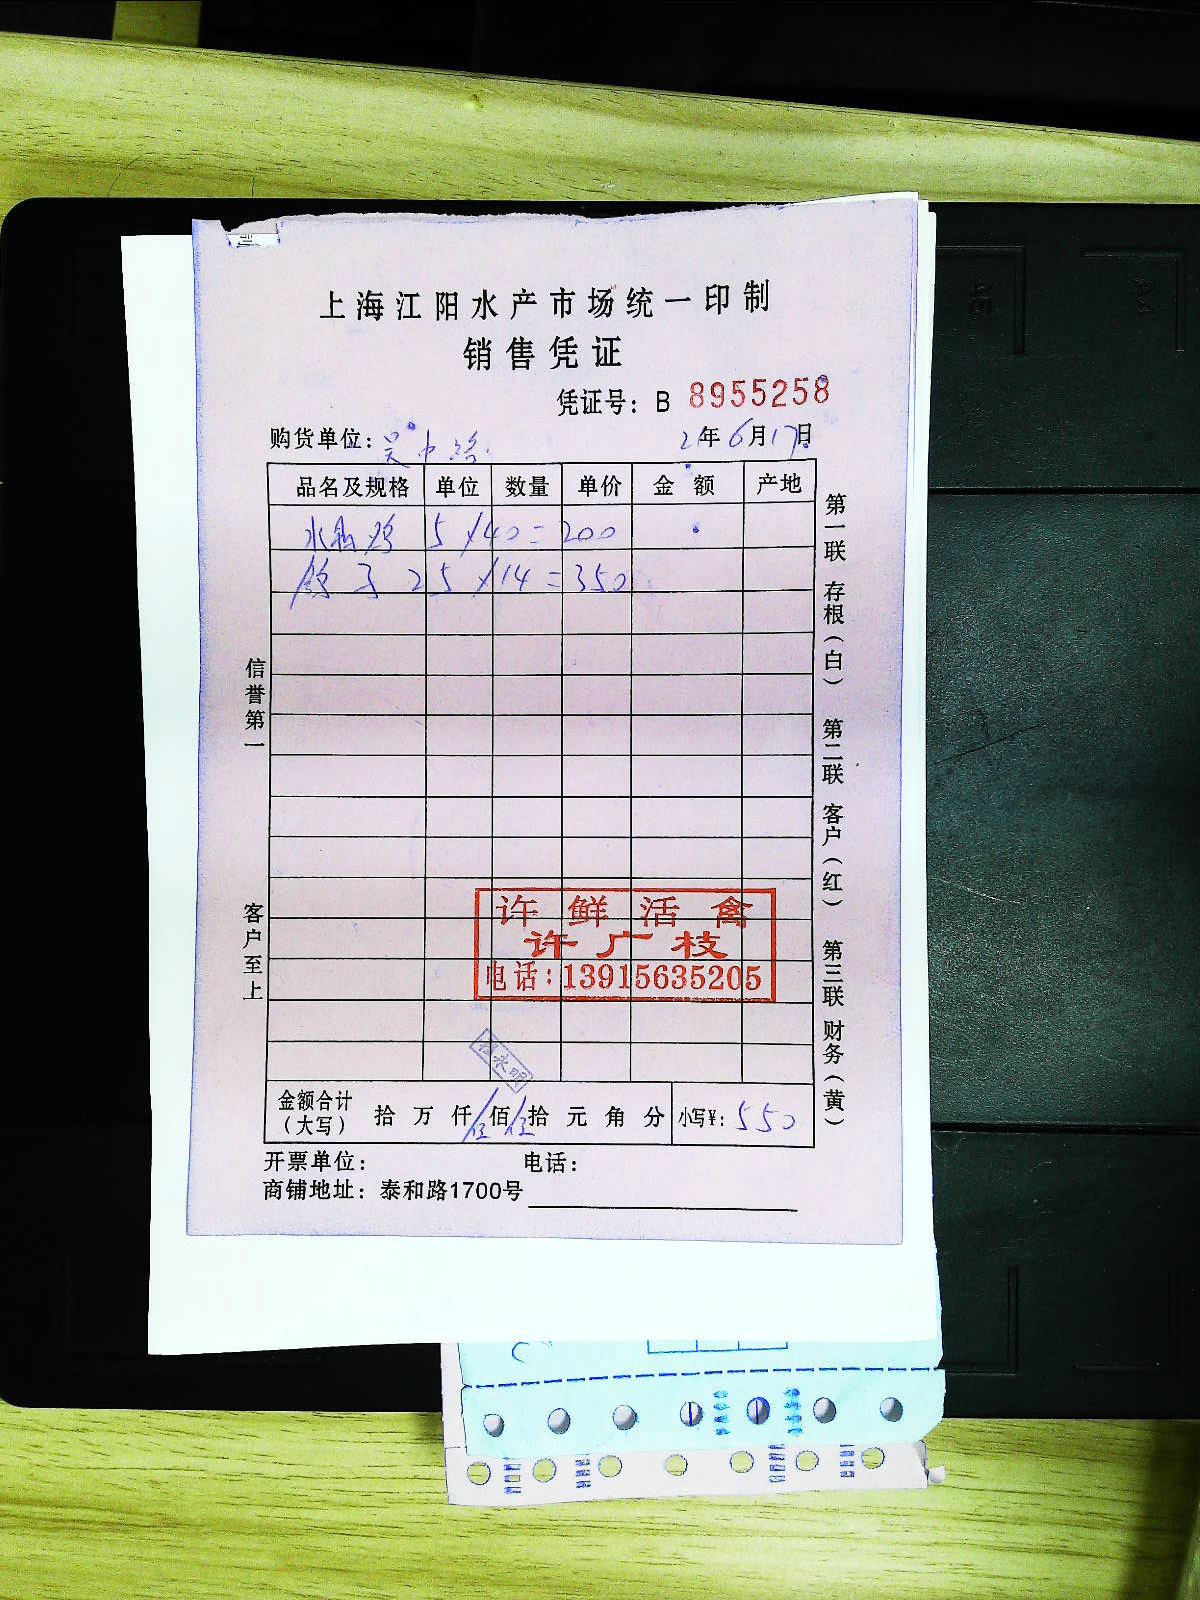 上海江阳水产市场统一印制
销售凭证
凭证号：B 8955258
购货单位：吴中路 21年6月17日
品名及规格 单位 数量 单价 金额 产地
5×40=200
鸽子 25×14=350
信誉第一
客户至上
第一联 存根（白） 第二联 客户（红） 第三联 财务（黄）
许鲜活禽
许广枝
电话：13915635205
永明
金额合计（大写） 拾万仟伍佰伍拾元角分 小写¥：550
开票单位： 电话：
商铺地址：泰和路1700号
A5
A4